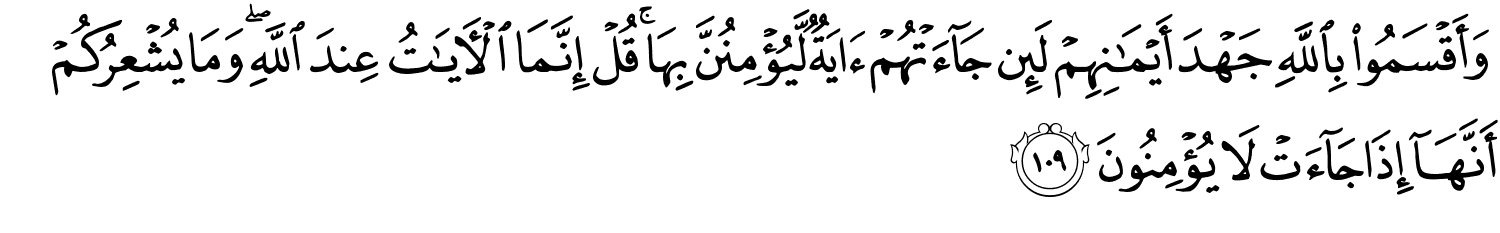 وَأَقۡسَمُواْ بِٱللَّهِ جَهۡدَ أَيۡمَٰنِهِمۡ لَئِن جَآءَتۡهُمۡ ءَايَةٞ لَّيُؤۡمِنُنَّ بِهَاۚ قُلۡ إِنَّمَا ٱلۡأٓيَٰتُ عِندَ ٱللَّهِۖ وَمَا يُشۡعِرُكُمۡ
أَنَّهَآ إِذَا جَآءَتۡ لَا يُؤۡمِنُونَ ١٠٩